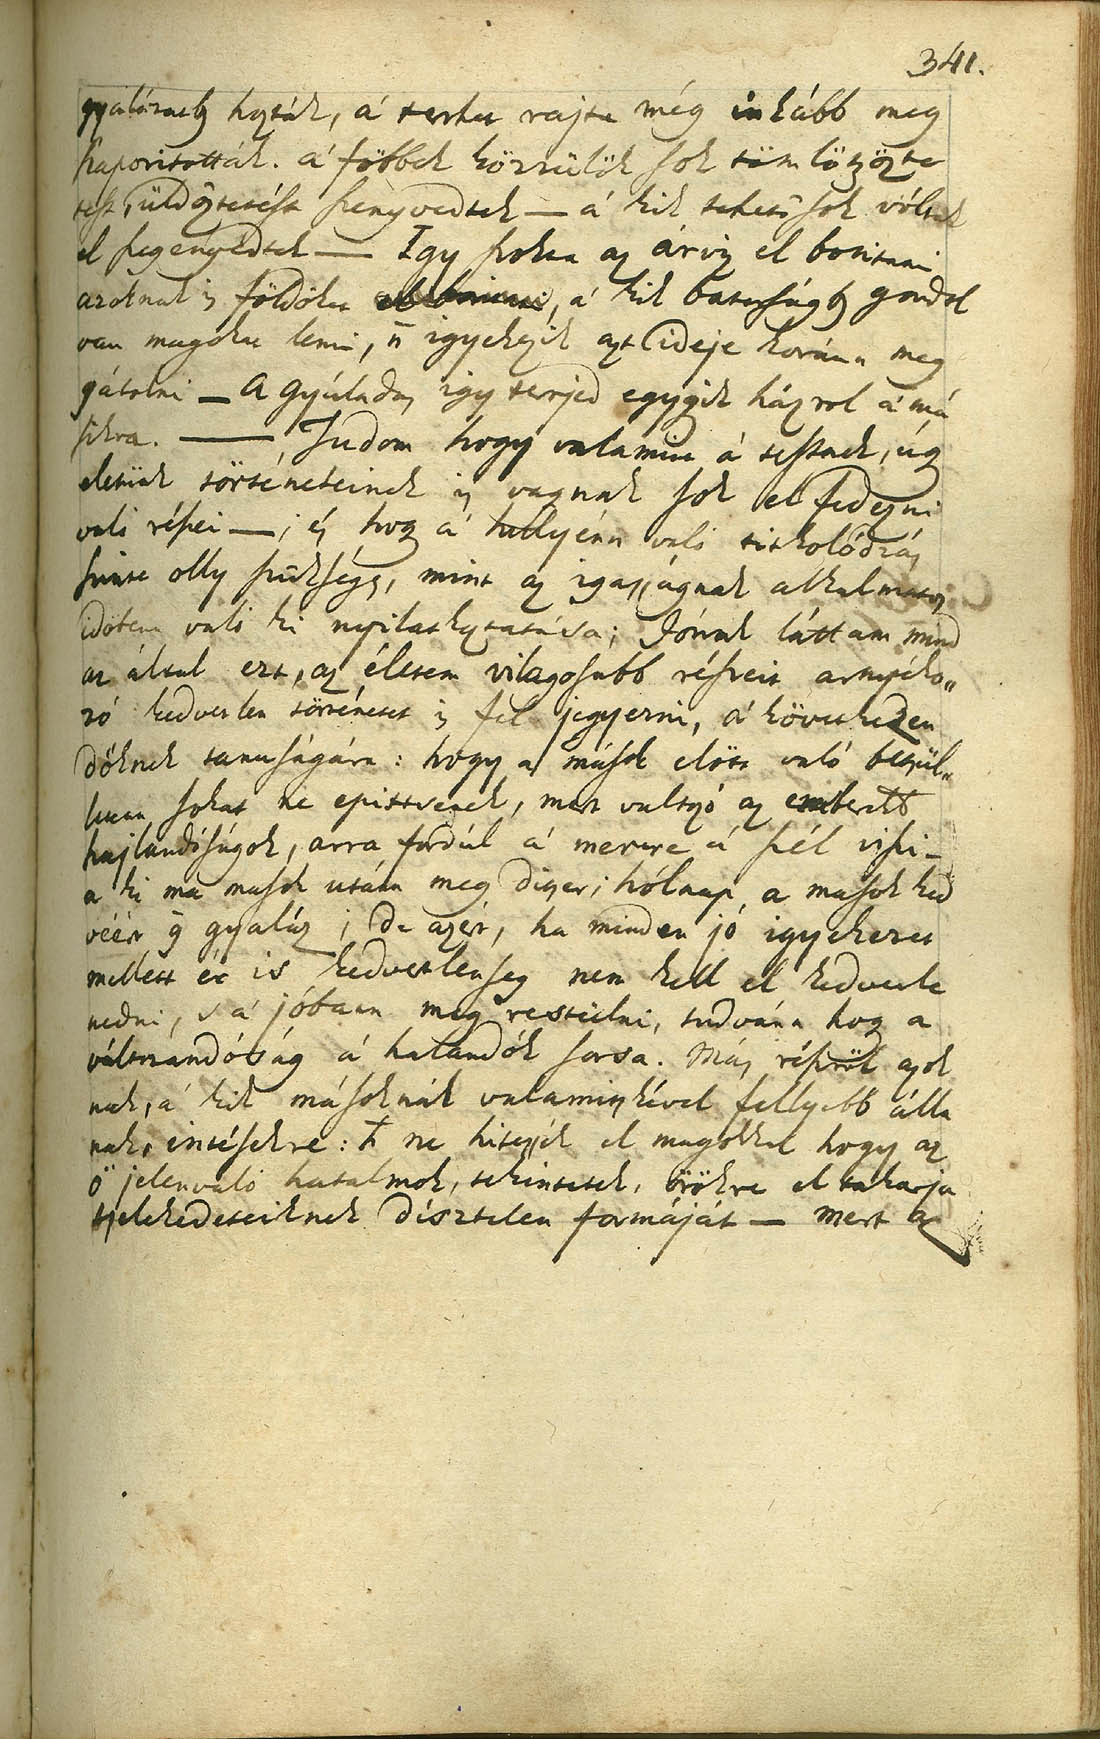 341.
hozták, á terhet rajta még inkább meg
szaporitották. á többek közzülök sok tömlötzözte
test, üldöztetést szenyvedtek — á kik tehetősok vóltak
el szegényedtek — Igy szokta az árviz el boritani
azoknak is földöket, á kik batorságb gondol
van magokra lenni, 's igyekezik azt ideje korán meg
gátolni — A gyúladás igy terjed egygyik házrol á má
sikra. — Tudom hogy valamint á testnek, úgy
életünk történeteinek is vagnak sok el fedezni
való részei —; és hogy á hellyén való titkolódzás
szinte olly szükséges, mint az igazságnak alkalmatos
időben való ki nyilatkoztatása; Jónak láttam mind
az által ezt, az életem világosabb részeit árnyéko„
zó kedvetlen történetet is fel jegyezni, á következen
dőknek tanuságára: hogy a mások előtt való betsül„
letre sokat ne epittsenek, mert valtozó az emberek
hajlandóságok, arra fordúl á merre á szél viszi —
a ki ma mások után meg ditsér; hólnap a mások ked
véért is gyaláz; de azért, ha minden jó igyekezet
mellett ér is kedvetlenség nem kell el kedvetle
nedni, 's á jóban meg restülni, tudván hogy a
váltorandóság á halandók sorsa. Más részröl azok
nak, á kik másoknák valamigskével fellyebb álla
nak, intésekre: ne hitessék el magokkal hogy az
ő jelenvaló hatalmok, tekintetek, örökre el takarja
tselekedeteiknek dísztelen formáját — mert az